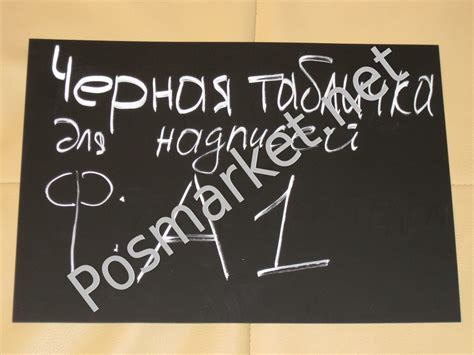 Черная табличка
для надписей
ф. А1
Posmarket.net